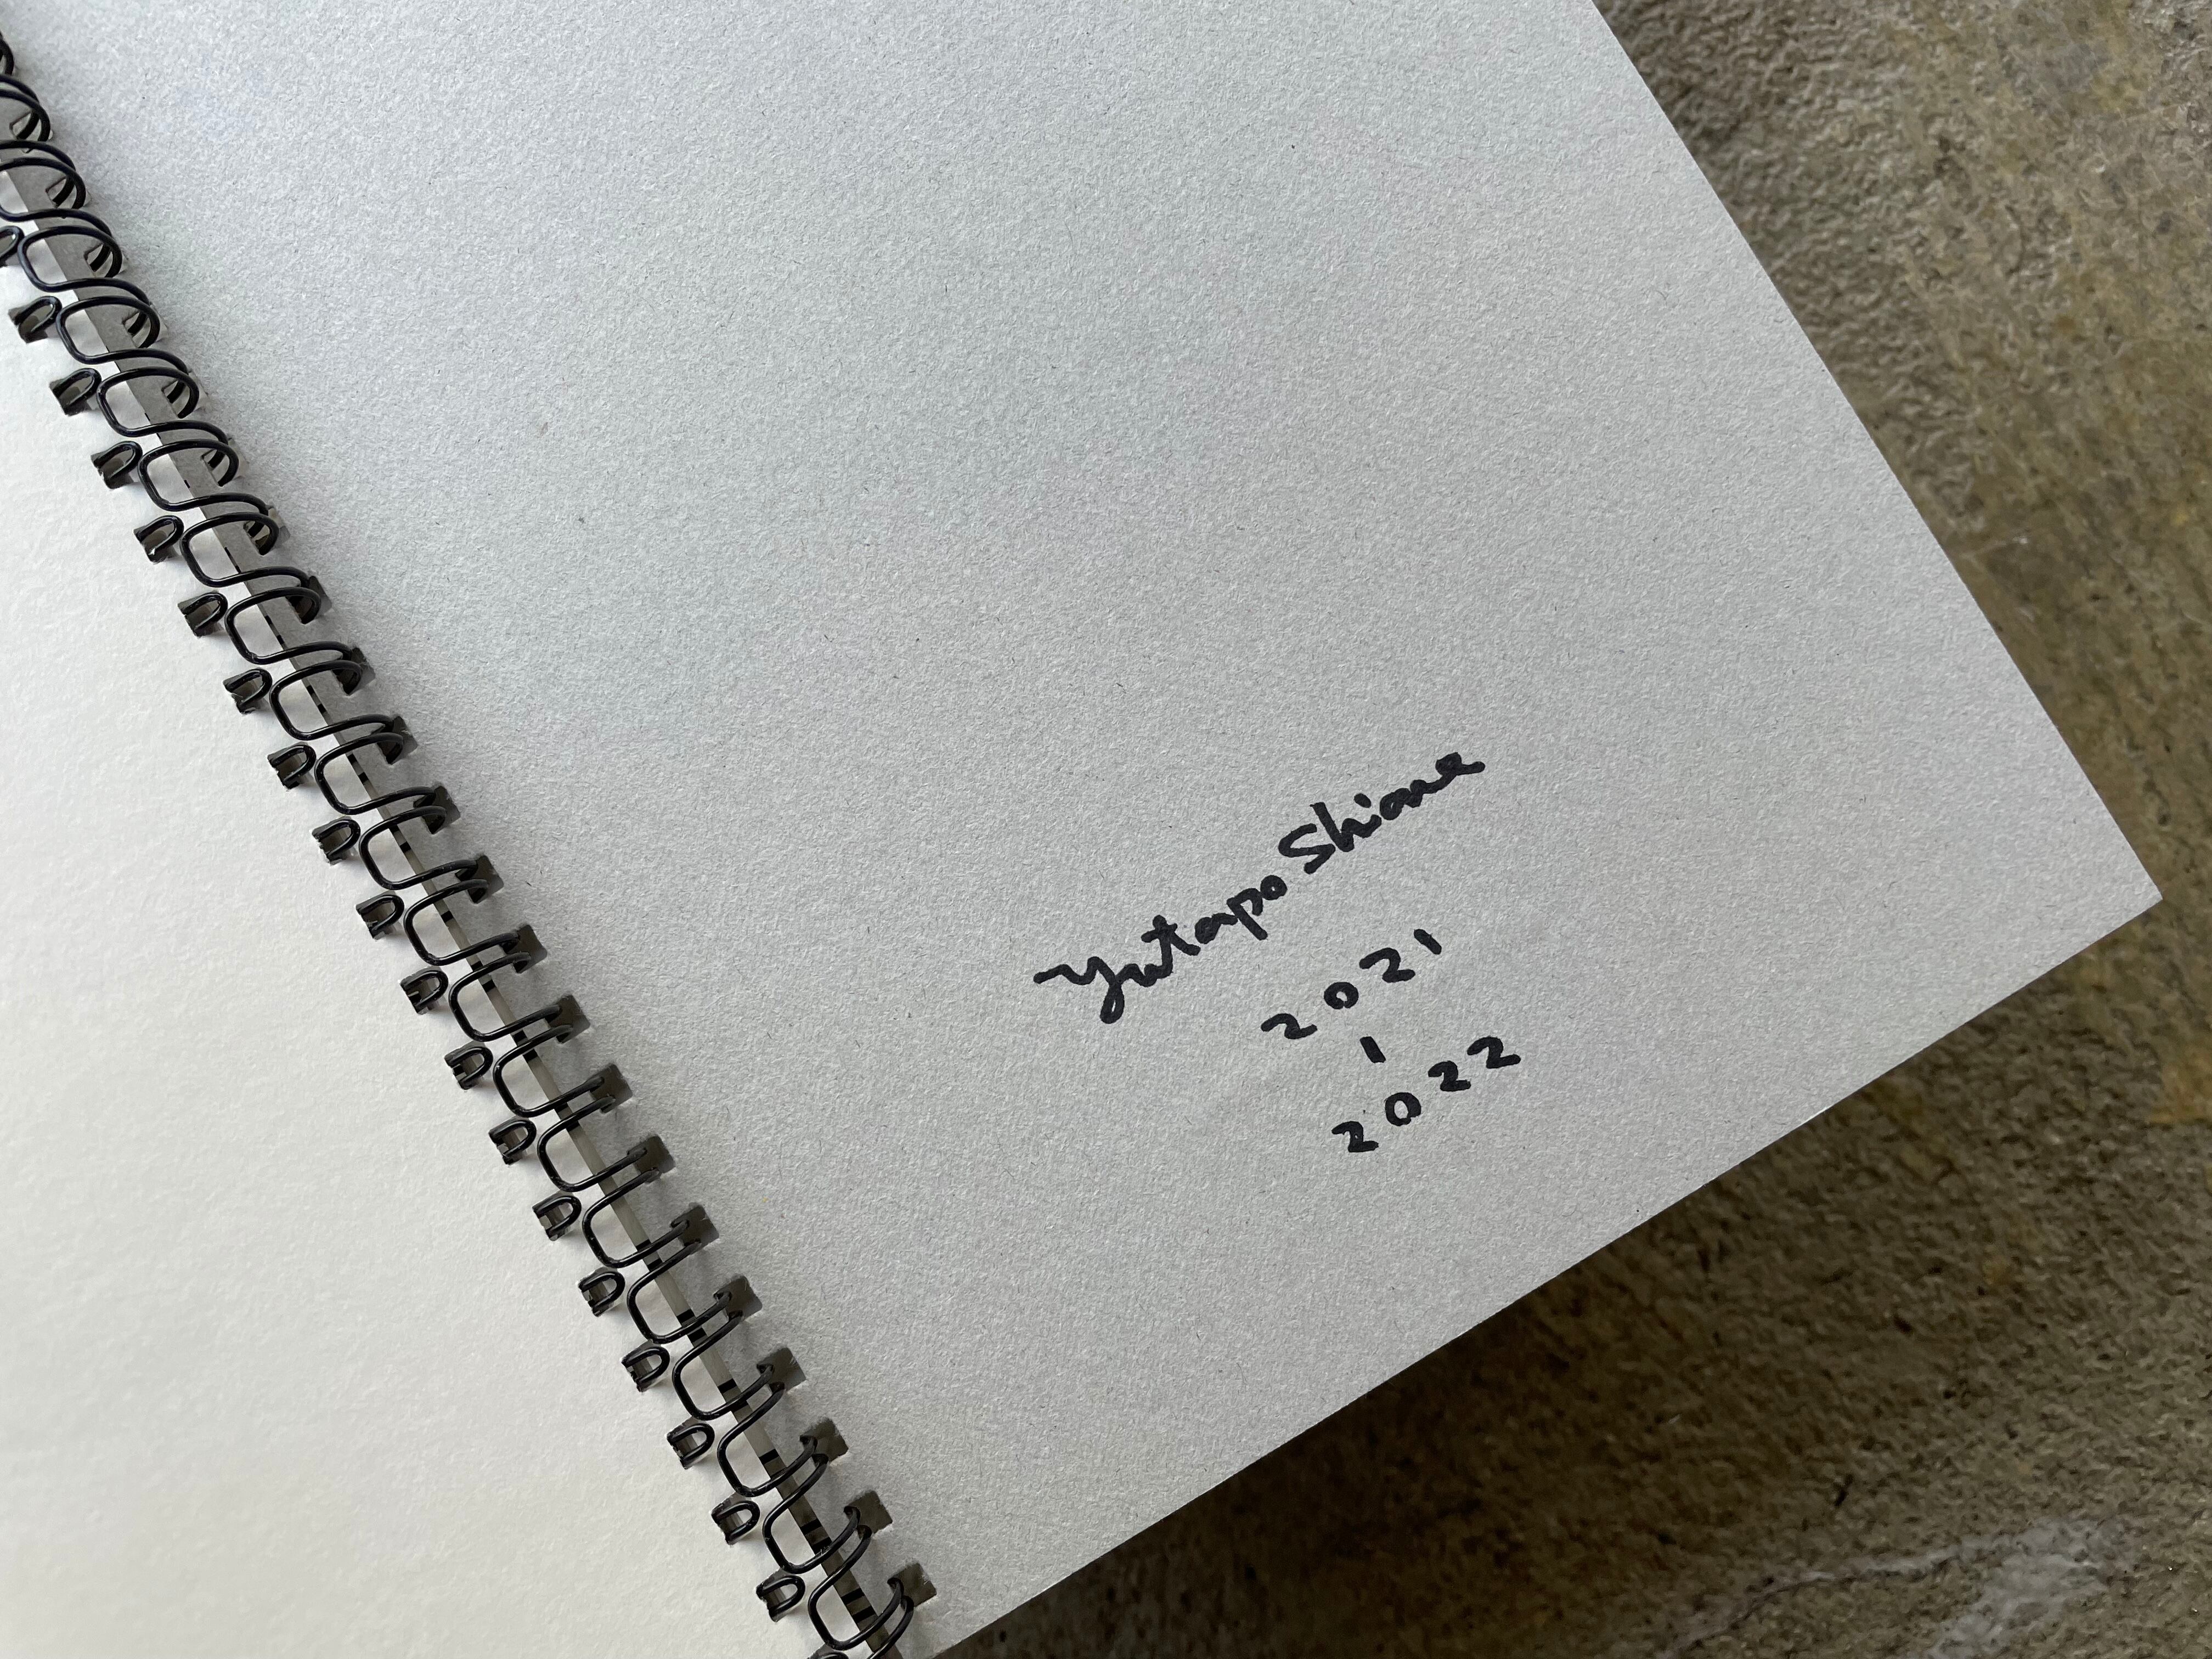 Yutapo Shiane
2021
|
2022